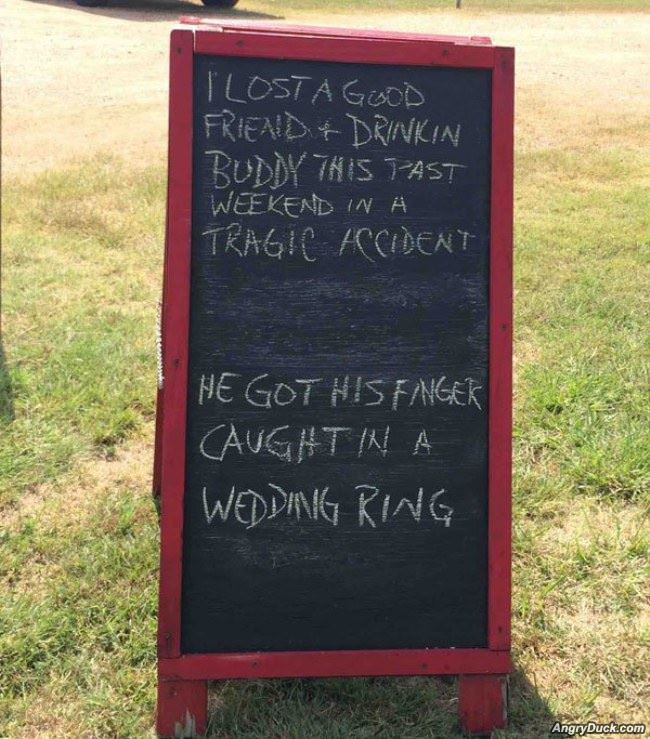 I LOST A GOOD
FRIEND + DRINKIN
BUDDY THIS PAST
WEEKEND IN A
TRAGIC ACCIDENT
HE GOT HIS FINGER
CAUGHT IN A
WEDDING RING
AngryDuck.com